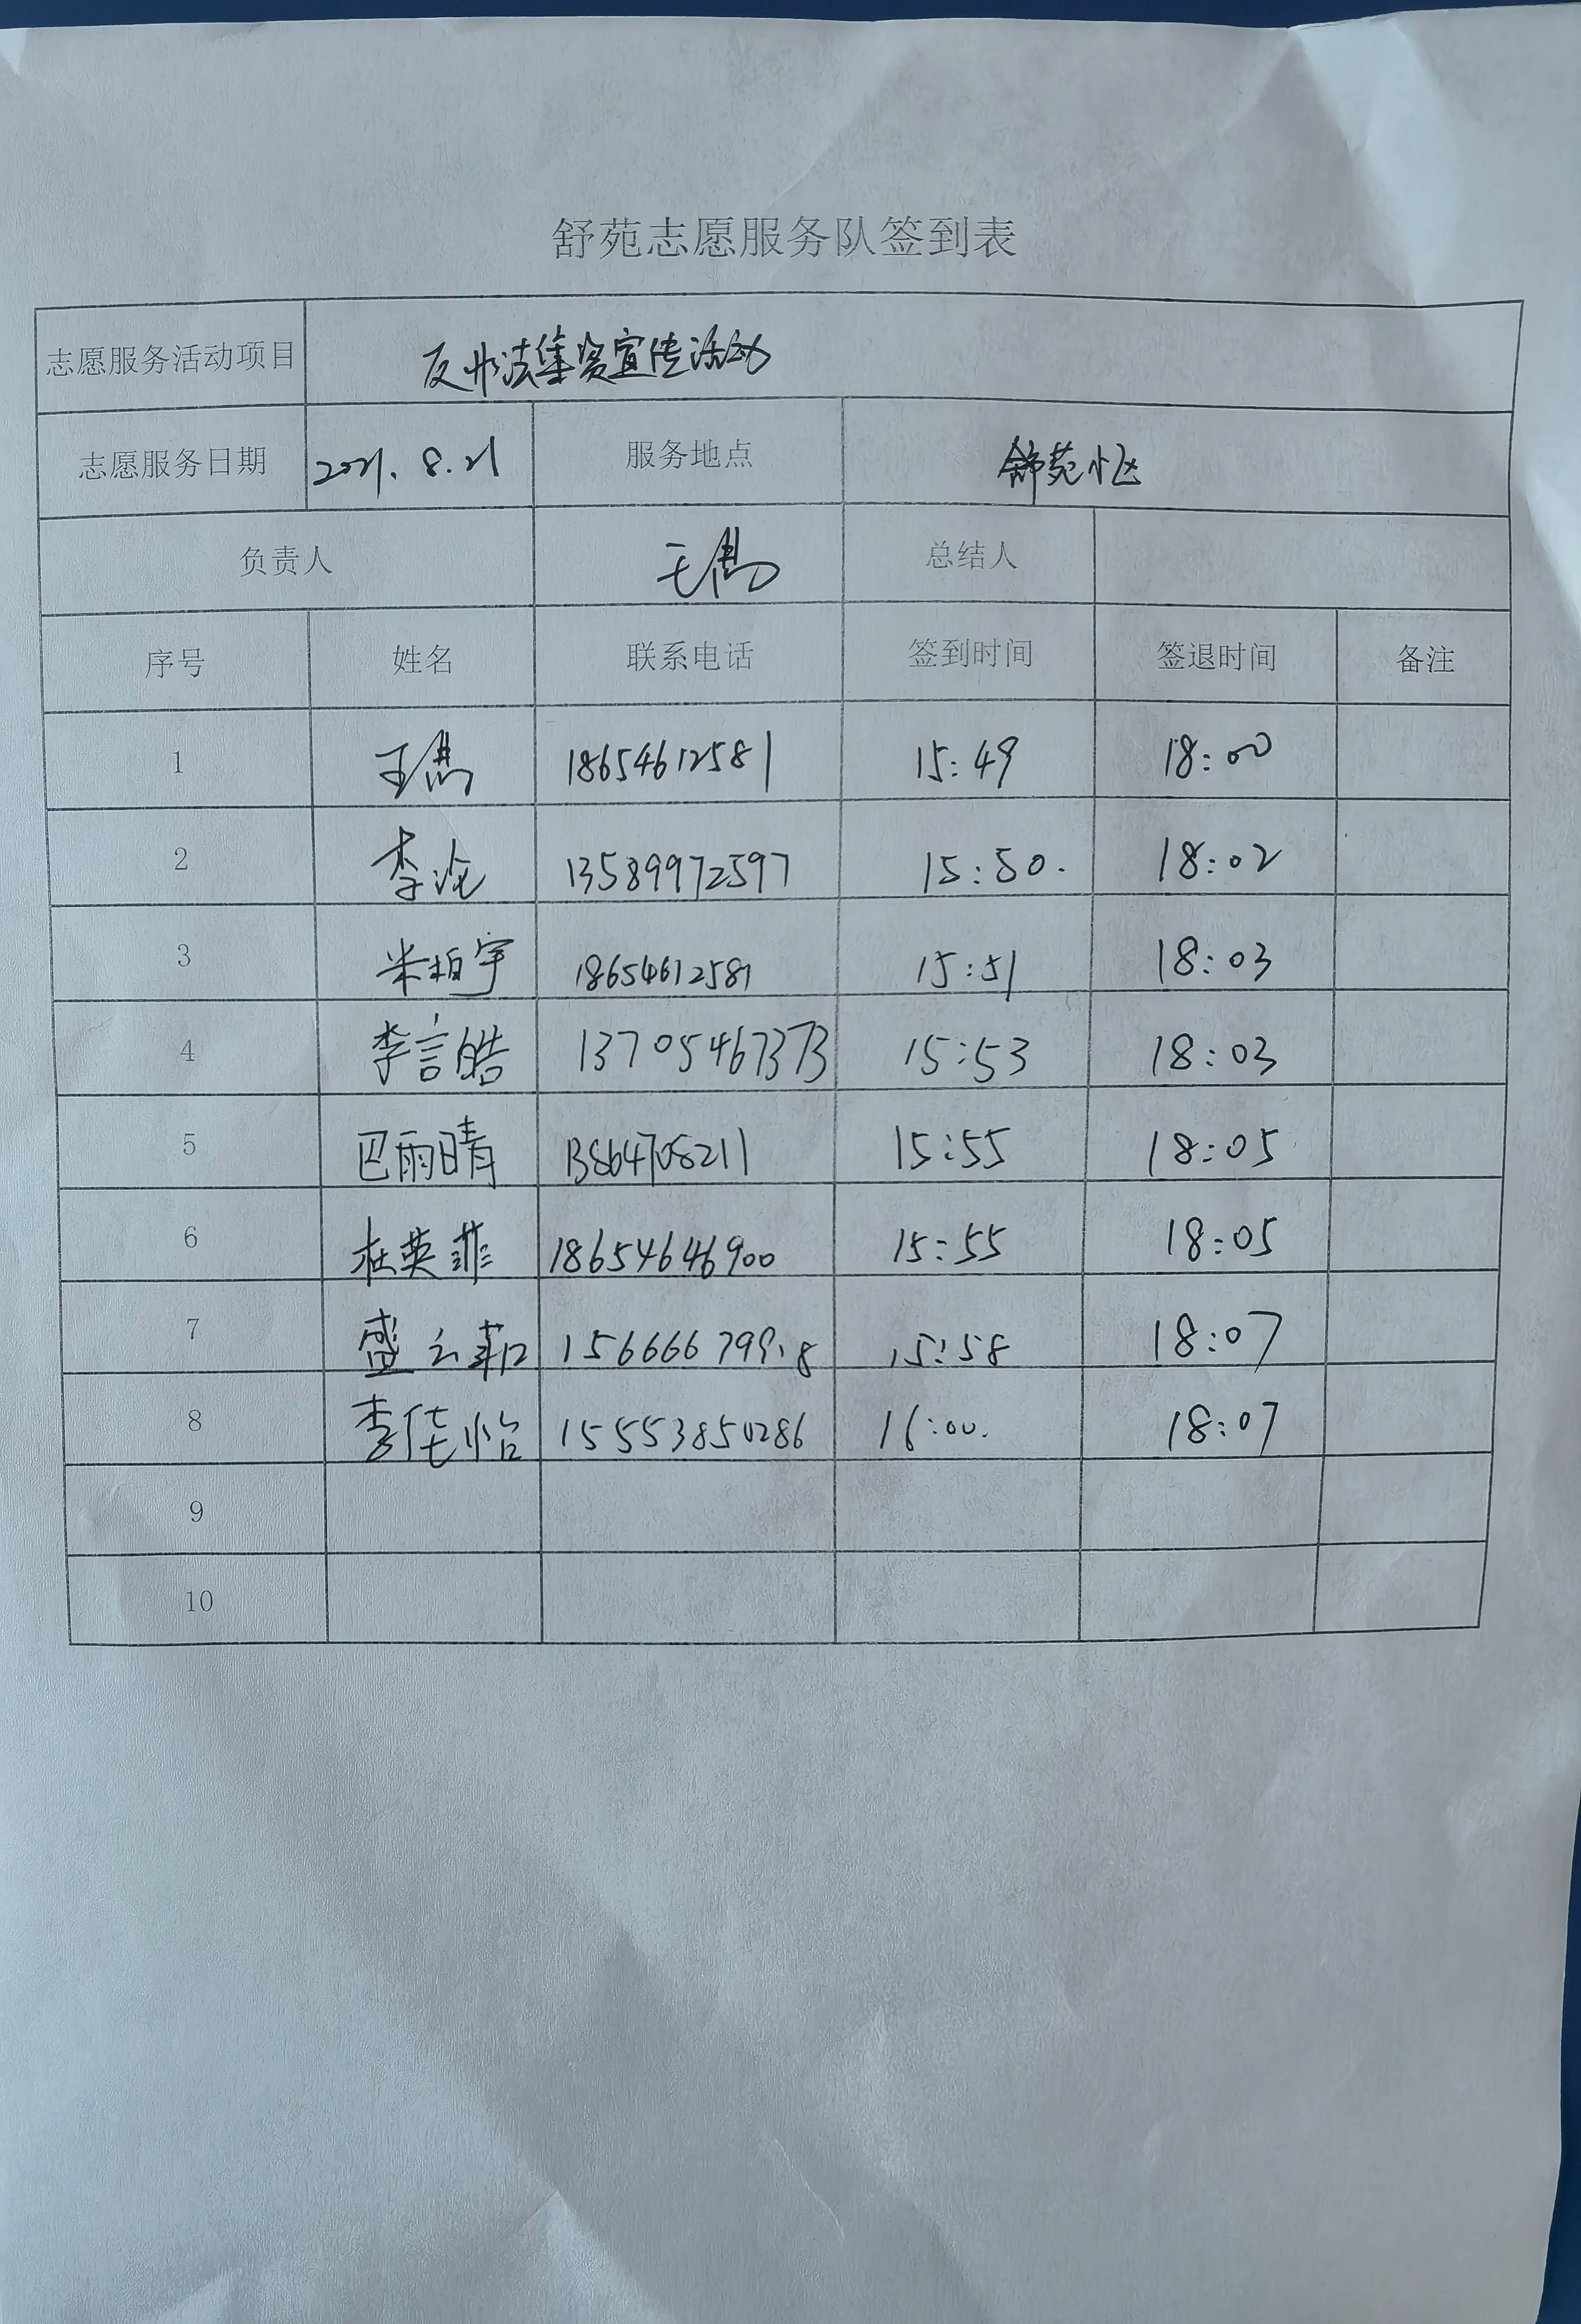 舒苑志愿服务队签到表
志愿服务活动项目 反非法集资宣传活动
志愿服务日期 2021.8.21 服务地点 舒苑小区
负责人 王 总结人
序号 姓名 联系电话 签到时间 签退时间 备注
1 王 18654612581 15:49 18:00
2 李 13589972597 15:50. 18:02
3 米柏宇 18654612581 15:51 18:03
4 李言皓 13705467373 15:53 18:03
5 巴雨晴 13864708211 15:55 18:05
6 杜英菲 18654646900 15:55 18:05
7 盛云 15:58 18:07
8 李佳怡 15553850286 16:00. 18:07
9
10